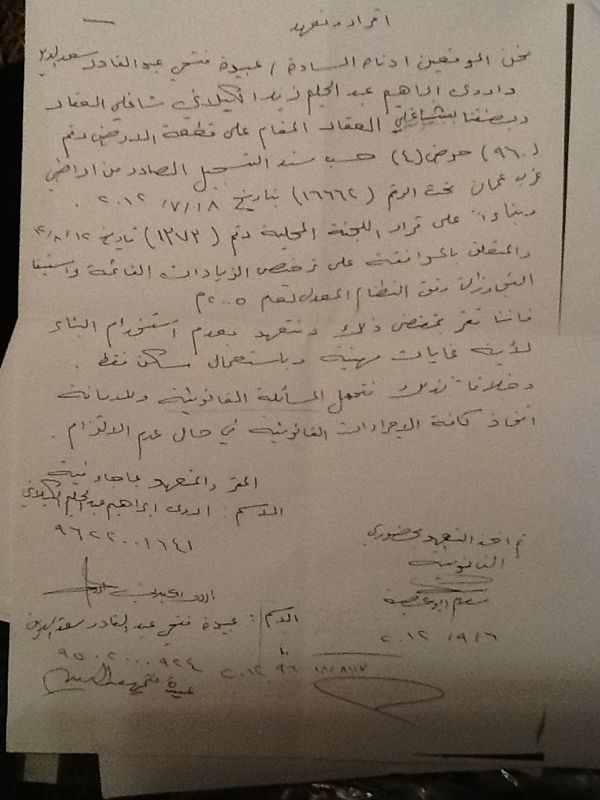 اقرار وتعهد
نحن الموقعين ادناه السادة / عبيدة فتحي عبد القادر سعد الدين
واروى ابراهيم عبد الحليم زيد الكيلاني شاغلي العقار
وبصفتنا شاغلي العقار المقام على قطعة الارض رقم
(٩٦٠) حوض (٤) حسب سند التسجيل الصادر من اراضي
غرب عمان تحت الرقم (١٦٦٦٢) بتاريخ ٢٠١٢/٧/١٨ .
وبناءاً على قرار اللجنة المحلية رقم (١٣٧٣) تاريخ ١٢/٨/١٢
والمتعلق بالموافقة على ترخيص الزيادات القائمة واستيفاء
التجاوزات وفق النظام المعدل لعام ٢٠٠٥م
فاننا نقر بمقتضى ذلك ونتعهد بعدم استخدام البناء
لأية غايات مهنية وباستعمال سكن فقط .
وخلافاً لذلك نتحمل المسائلة القانونية وللامانة
اتخاذ كافة الاجراءات القانونية في حال عدم الالتزام .
المقر والمتعهد بما جاء فيه
الاسم : اروى ابراهيم عبد الحليم الكيلاني
٩٦٢٢٠٠١٦٤١
تم اخذ التعهد بحضوري
القانونية
٢٠١٢/٩/٦
الاسم : عبيدة فتحي عبد القادر سعد الدين
٩٥٠٢٠٠٠٩٢٤